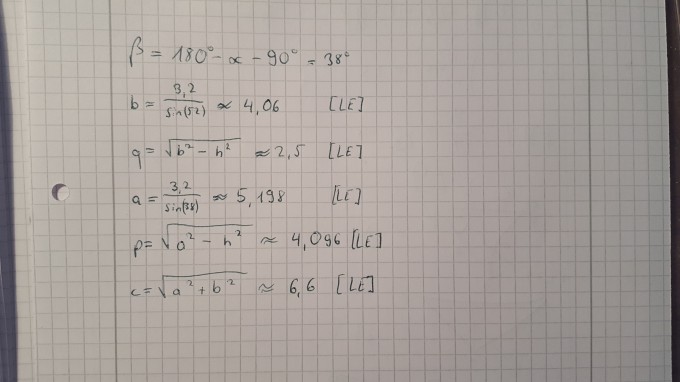 β = 180° - α - 90° = 38°
b = 3,2 / sin(52) ≈ 4,06 [LE]
q = √(b² - h²) ≈ 2,5 [LE]
a = 3,2 / sin(38) ≈ 5,198 [LE]
p = √(a² - h²) ≈ 4,096 [LE]
c = √(a² + b²) ≈ 6,6 [LE]